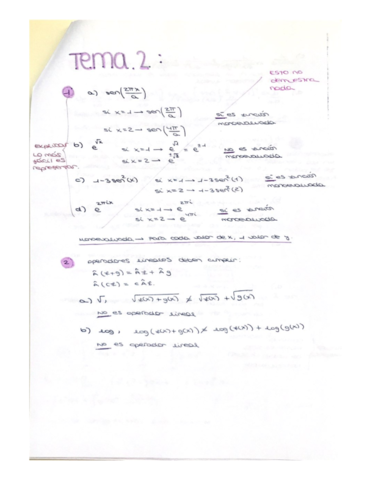 Tema 2:
esto no demuestra nada
1 a) sen(2πx/a)
si x=1 → sen(2π/a)
si x=2 → sen(4π/a)
sí es función monoevaluada
lo más fácil es representar.
b) e^√x
si x=1 → e^√1 = e^±1
si x=2 → e^±√2
No es función monoevaluada
c) 1-3sen²(x)
si x=1 → 1-3sen²(1)
si x=2 → 1-3sen²(2)
sí es función monoevaluada
d) e^2πix
si x=1 → e^2πi
si x=2 → e^4πi
sí es función monoevaluada
monoevaluada → Para cada valor de x, 1 valor de y
2 operadores lineales deben cumplir:
Â(f+g) = Âf + Âg
Â(cf) = cÂf
a) √, √(f(x)+g(x)) ≠ √f(x) + √g(x)
No es operador lineal
b) log, log(f(x)+g(x)) ≠ log(f(x)) + log(g(x))
No es operador lineal